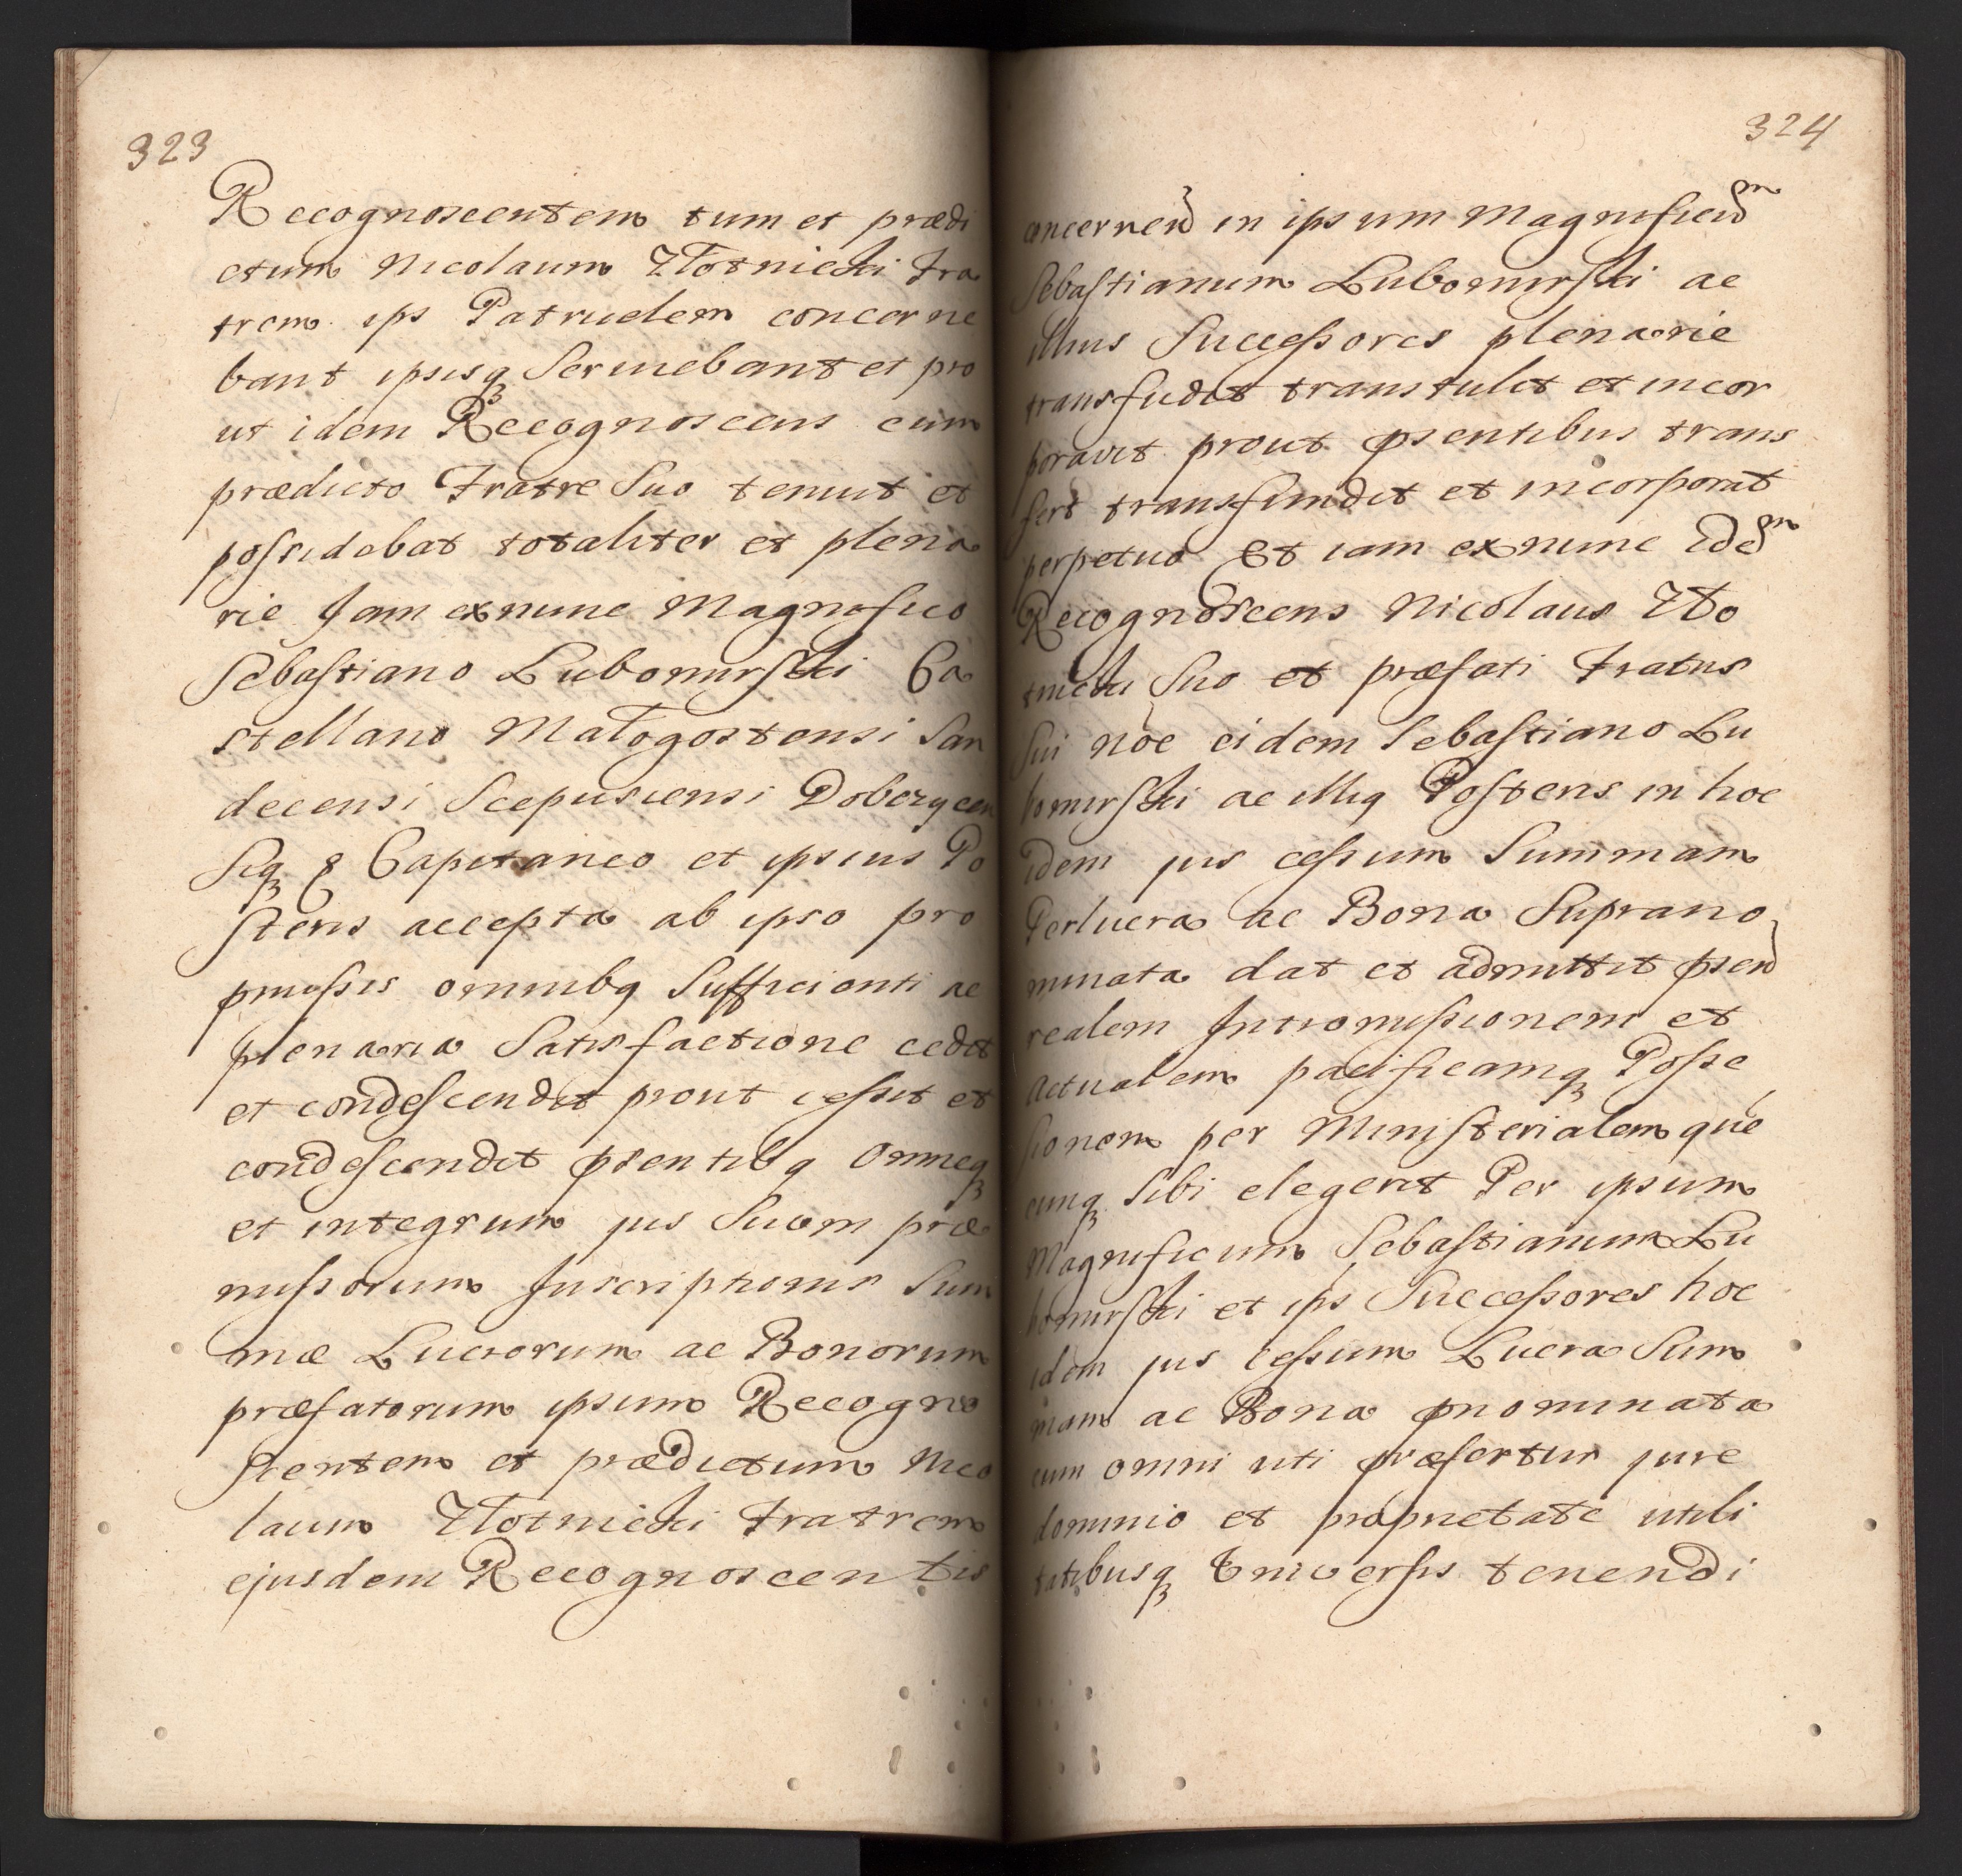 323
Recognoscentem tum et prædi
ctum Nicolaum Złotnicki Fra
trem ips Patruelem concerne
bant ipsisq3 Serviebant et pro
ut idem Recognoscens cum
prædicto Fratre Suo tenuit et
possidebat totaliter et plena
rie Jam exnunc Magnifico
Sebastiano Lubomirski Ca
stellano Małogostensi San
decensi Scepusiensi Dobczycen
Siq3 &c Capitaneo et ipsius Po
steris accepta ab ipso pro
pmissis omnibq Sufficienti ac
plenaria Satisfactione cedit
et condescendit prout cessit et
condescendit psentibq Omneq3
et integrum jus Suum præ
missorum Inscriptionis Sum
mæ Lucrorum ac Bonorum
præfatorum ipsum Recogno
scentem et prædictum Nico
laum Złotnicki Fratrem
ejusdem Recognoscentis
324
concernen in ipsum Magnificum
Sebastianum Lubomirski ac
illius Successores plenarie
transfudit transtulit et incor
poravit prout psentibus trans
fert transfundit et incorporat
perpetuo Et iam exnunc Idem
Recognoscens Nicolaus Zło
tnicki Suo et præfati Fratris
Sui noe eidem Sebastiano Lu
bomirski ac illiq Posteris in hoc
idem jus cessum Summam
Perlucra ac Bona Suprano
minata dat et admittit psen
realem Intromissionem et
Actualem pacificamq3 Posse
sionem per Ministerialem que
cunq3 Sibi elegerit Per ipsum
Magnificum Sebastianum Lu
bomirski et ips Successores hoc
idem jus cessum Lucra Sum
mam ac Bona pnominata
cum omni uti præfertur jure
dominio et proprietate utili
tatibusq3 Universis tenendi